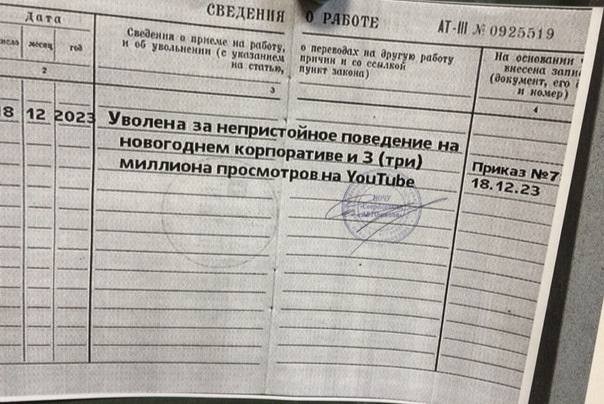 СВЕДЕНИЯ О РАБОТЕ
АТ-III № 0925519
Дата
месяц
год
2
Сведения о приеме на работу,
и об увольнении (с указанием
на статью,
о переводах на другую работу
причин и со ссылкой
пункт закона)
3
На основании
внесена
(документ, его
и номер)
4
18 12 2023
Уволена за непристойное поведение на
новогоднем корпоративе и 3 (три)
миллиона просмотров на YouTube
Приказ №7
18.12.23